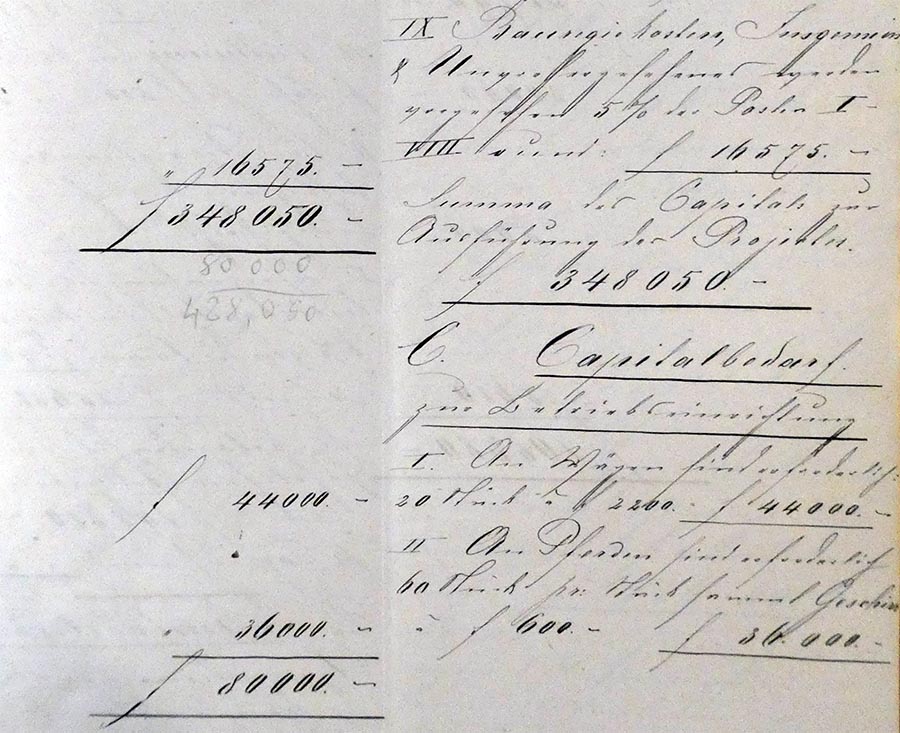 IX Bauregiekosten, Insgemein
& Unvorhergesehenes werden
vorgesehen 5 % der Posten I –
VIII rund: f 16575. –
Summa des Capitals zur
Ausführung des Projectes.
f 348050. –
C. Capitalbedarf
zur Betriebseinrichtung
I. An Wägen sind erforderlich:
20 Stück à f 2200. – f 44000. –
II An Pferden sind erforderlich
60 Stück pr: Stück sammt Geschirr
à f 600. – f 36.000. –
" 16575. –
f 348050. –
80000
428,050
f 44000. –
36000. –
f 80000. –